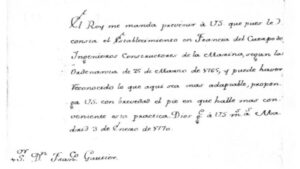 El Rey me manda prevenir à V.S. que pues le
consta el Establecimiento en Francia del Cuerpo de
Ingenieros Constructores de la Marina, segun la
Ordenanza de 25 de Marzo de 1765, y puede haver
reconocido lo que aqui sea mas adaptable, propon-
ga V.S. con brevedad el pie en que halle mas con-
veniente esta practica. Dios g.e à V.S. m.s a.s Ma-
drid 3 de Enero de 1770.
S.r D.n Fran.co Gautier.